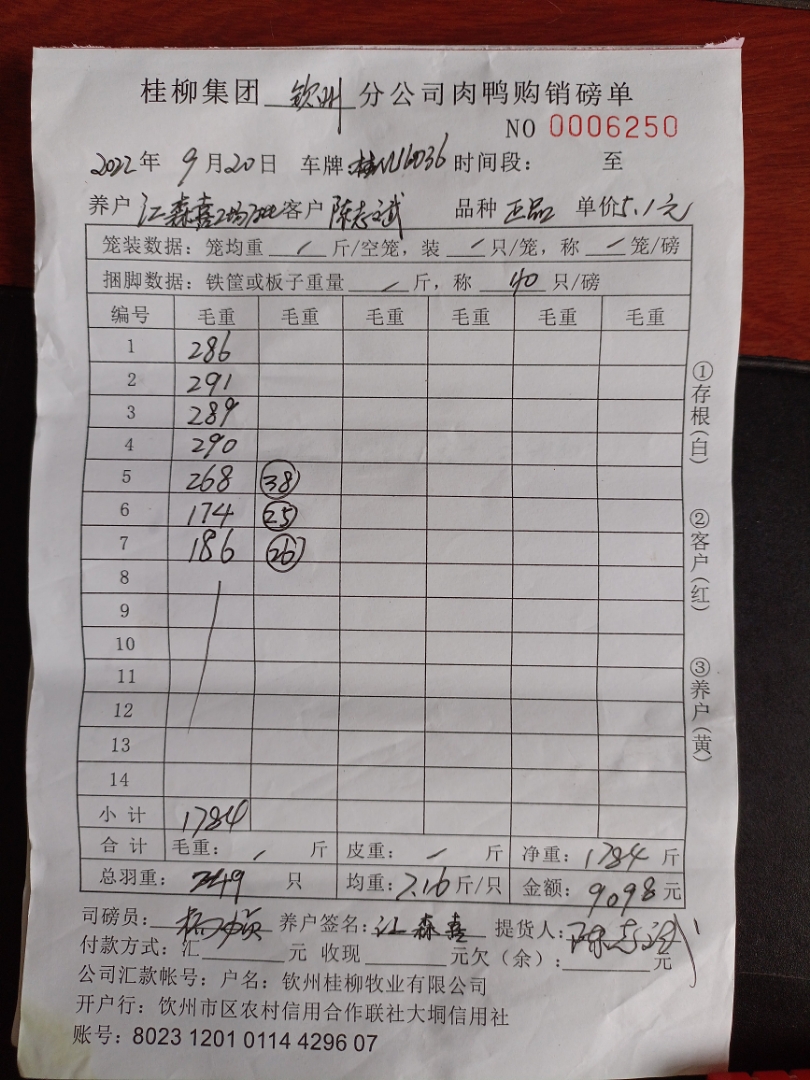 桂柳集团 钦州 分公司肉鸭购销磅单
NO 0006250
2022年 9月20日 车牌: 6036 时间段: 至
养户 江森喜 客户 陈志斌 品种 正品 单价5.1元
笼装数据：笼均重 / 斤/空笼，装 / 只/笼，称 / 笼/磅
捆脚数据：铁筐或板子重量 / 斤，称 40 只/磅
编号 毛重 毛重 毛重 毛重 毛重 毛重
1 286
2 291
3 289
4 290
5 268 38
6 174 25
7 186 26
8
9
10
11
12
13
14
小计 1784
合计 毛重： / 斤 皮重： / 斤 净重：1784 斤
总羽重： 249 只 均重：7.16斤/只 金额：9098元
司磅员： 养户签名：江森喜 提货人：陈志斌
付款方式：汇 元 收现 元欠（余）： 元
公司汇款帐号：户名：钦州桂柳牧业有限公司
开户行：钦州市区农村信用合作联社大垌信用社
账号：8023 1201 0114 4296 07
①存根(白)
②客户(红)
③养户(黄)